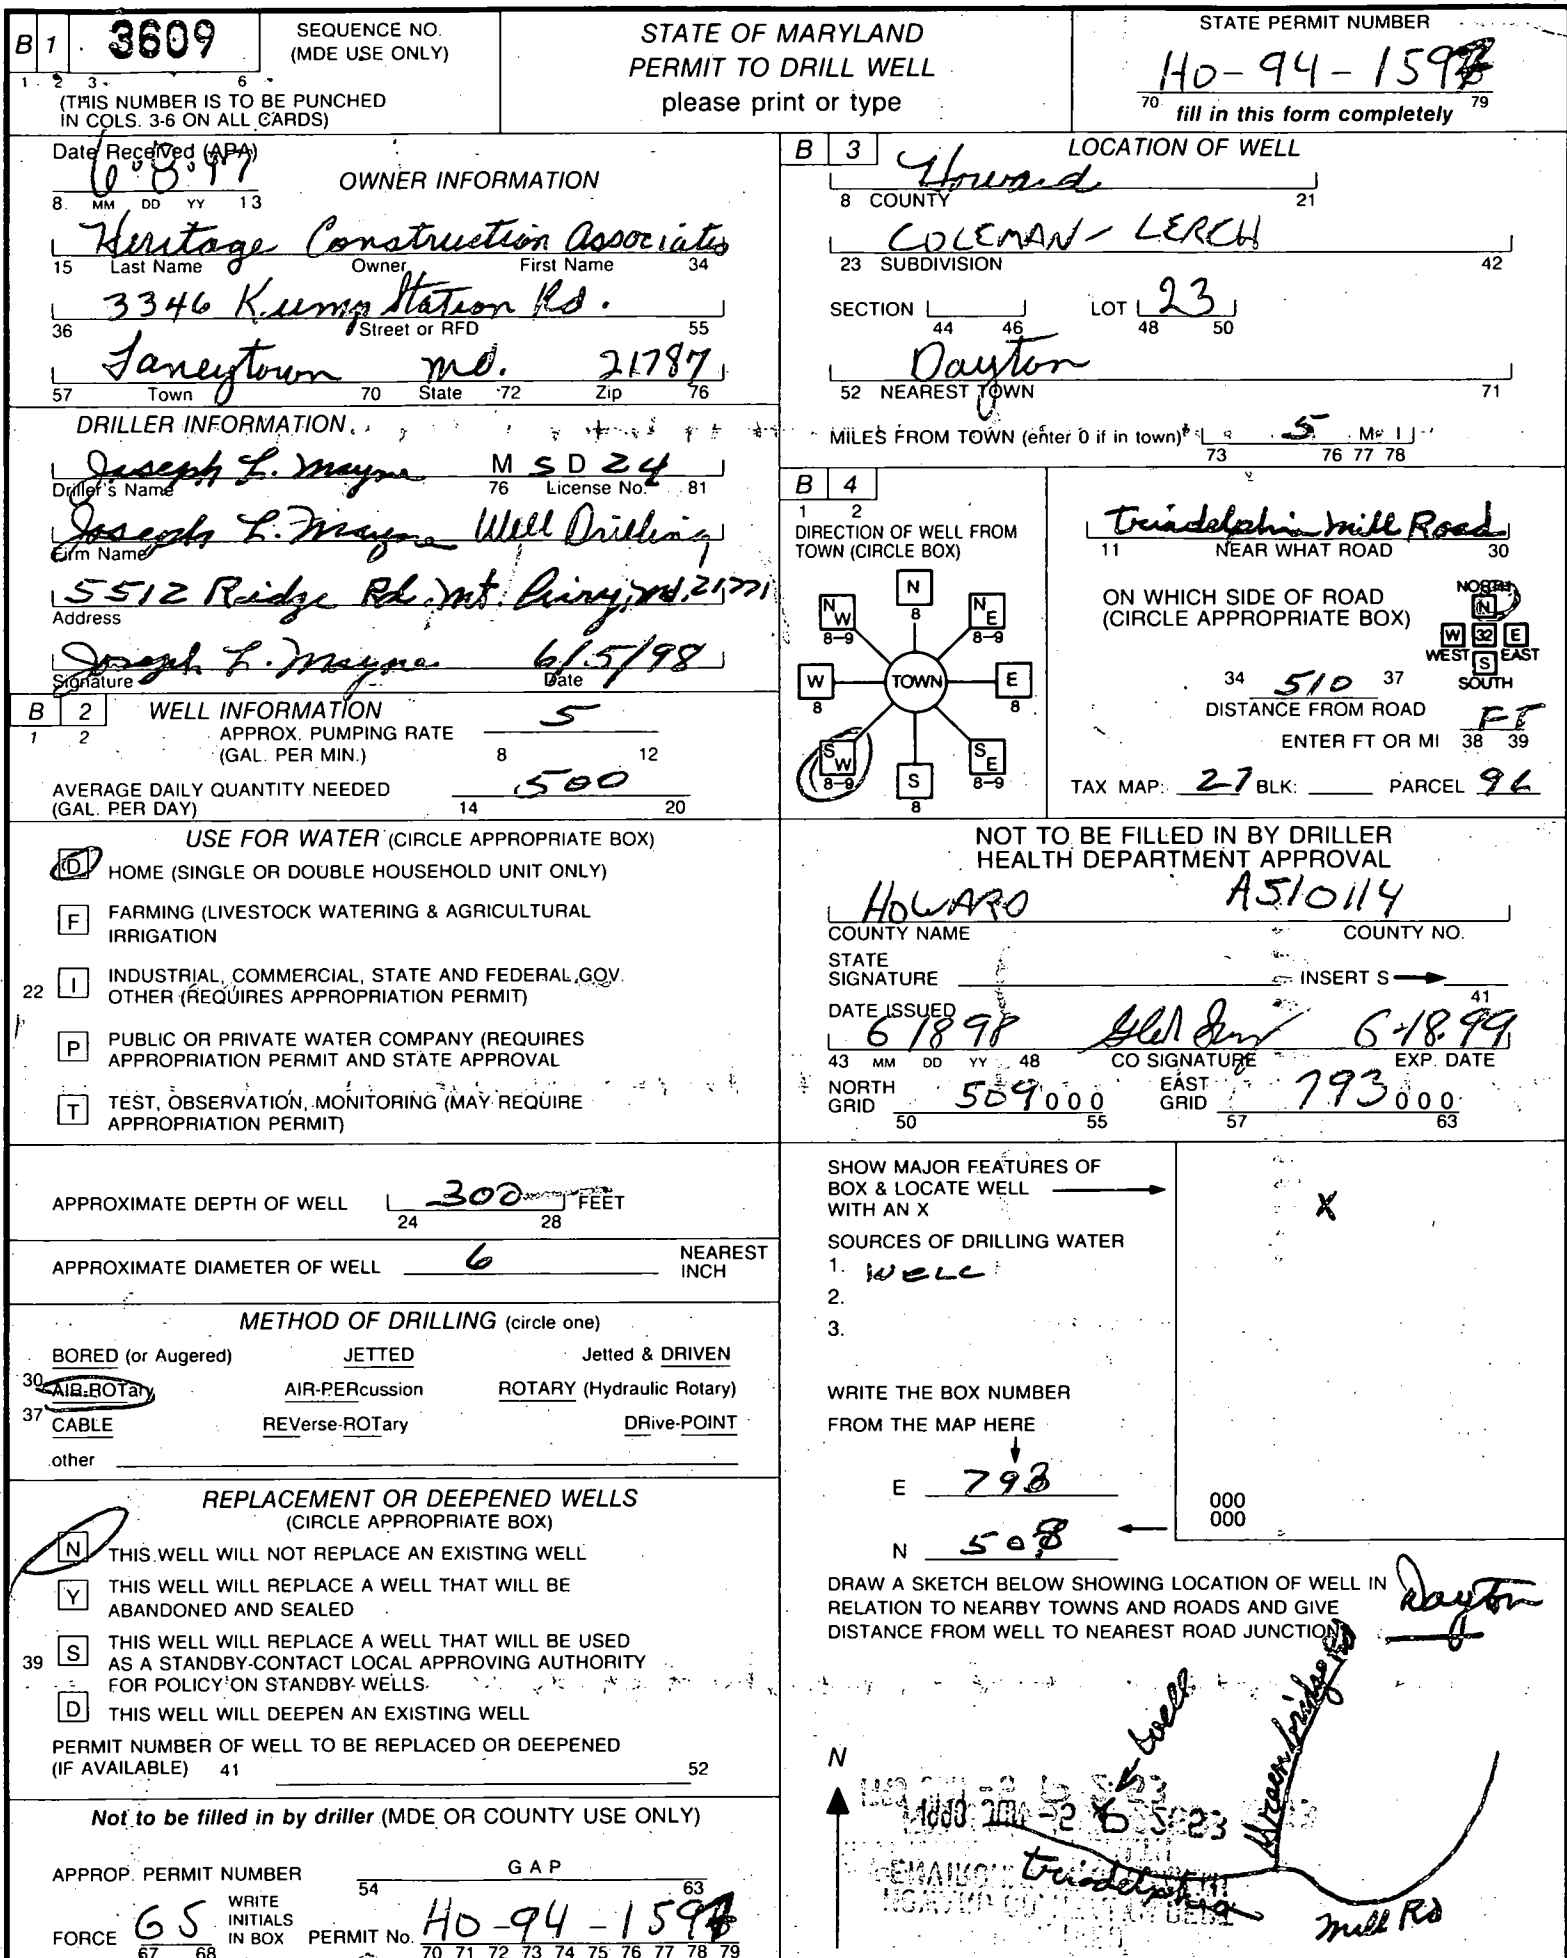 B 1 3609 SEQUENCE NO. (MDE USE ONLY)
1 2 3 6
(THIS NUMBER IS TO BE PUNCHED
IN COLS. 3-6 ON ALL CARDS)
STATE OF MARYLAND
PERMIT TO DRILL WELL
please print or type
STATE PERMIT NUMBER
HO-94-159
70 79
fill in this form completely
Date Received (APA)
8 MM DD YY 13
OWNER INFORMATION
Heritage Construction Associates
15 Last Name Owner First Name 34
3346 Kump Station Rd.
36 Street or RFD 55
Taneytown Md. 21787
57 Town 70 State 72 Zip 76
DRILLER INFORMATION
Joseph L. Mayne M S D 24
Driller's Name 76 License No. 81
Joseph L. Mayne Well Drilling
Firm Name
5512 Ridge Rd. Mt. Airy, Md. 21771
Address
Joseph L. Mayne 6/5/98
Signature Date
B 2 WELL INFORMATION
1 2
APPROX. PUMPING RATE
(GAL. PER MIN.) 5
8 12
AVERAGE DAILY QUANTITY NEEDED
(GAL. PER DAY) 500
14 20
USE FOR WATER (CIRCLE APPROPRIATE BOX)
D HOME (SINGLE OR DOUBLE HOUSEHOLD UNIT ONLY)
F FARMING (LIVESTOCK WATERING & AGRICULTURAL
IRRIGATION
22 I INDUSTRIAL, COMMERCIAL, STATE AND FEDERAL GOV.
OTHER (REQUIRES APPROPRIATION PERMIT)
P PUBLIC OR PRIVATE WATER COMPANY (REQUIRES
APPROPRIATION PERMIT AND STATE APPROVAL
T TEST, OBSERVATION, MONITORING (MAY REQUIRE
APPROPRIATION PERMIT)
APPROXIMATE DEPTH OF WELL 300 FEET
24 28
APPROXIMATE DIAMETER OF WELL 6 NEAREST
INCH
METHOD OF DRILLING (circle one)
BORED (or Augered) JETTED Jetted & DRIVEN
30 AIR-ROTary AIR-PERcussion ROTARY (Hydraulic Rotary)
37 CABLE REVerse-ROTary DRive-POINT
other
REPLACEMENT OR DEEPENED WELLS
(CIRCLE APPROPRIATE BOX)
N THIS WELL WILL NOT REPLACE AN EXISTING WELL
Y THIS WELL WILL REPLACE A WELL THAT WILL BE
ABANDONED AND SEALED
39 S THIS WELL WILL REPLACE A WELL THAT WILL BE USED
AS A STANDBY-CONTACT LOCAL APPROVING AUTHORITY
FOR POLICY ON STANDBY WELLS
D THIS WELL WILL DEEPEN AN EXISTING WELL
PERMIT NUMBER OF WELL TO BE REPLACED OR DEEPENED
(IF AVAILABLE) 41 52
Not to be filled in by driller (MDE OR COUNTY USE ONLY)
APPROP. PERMIT NUMBER G A P
54 63
FORCE GS WRITE INITIALS IN BOX PERMIT No. HO-94-159
67 68 70 71 72 73 74 75 76 77 78 79
B 3 LOCATION OF WELL
Howard
8 COUNTY 21
COLEMAN - LERCH
23 SUBDIVISION 42
SECTION LOT 23
44 46 48 50
Dayton
52 NEAREST TOWN 71
MILES FROM TOWN (enter 0 if in town) 5 M I
73 76 77 78
B 4
1 2
DIRECTION OF WELL FROM
TOWN (CIRCLE BOX)
N
8
NW NE
8-9 8-9
W TOWN E
8 8
SW SE
8-9 8-9
S
8
Triadelphia Mill Road
11 NEAR WHAT ROAD 30
ON WHICH SIDE OF ROAD
(CIRCLE APPROPRIATE BOX)
NORTH
N
W 32 E
WEST S EAST
SOUTH
34 510 37
DISTANCE FROM ROAD
ENTER FT OR MI FT
38 39
TAX MAP: 27 BLK: PARCEL 96
NOT TO BE FILLED IN BY DRILLER
HEALTH DEPARTMENT APPROVAL
HOWARD A510114
COUNTY NAME COUNTY NO.
STATE
SIGNATURE INSERT S
41
DATE ISSUED
6 18 98 6-18-99
43 MM DD YY 48 CO SIGNATURE EXP. DATE
NORTH GRID 509 000 EAST GRID 793 000
50 55 57 63
SHOW MAJOR FEATURES OF
BOX & LOCATE WELL
WITH AN X
X
SOURCES OF DRILLING WATER
1. WELL
2.
3.
WRITE THE BOX NUMBER
FROM THE MAP HERE
E 793
N 508
000
000
DRAW A SKETCH BELOW SHOWING LOCATION OF WELL IN
RELATION TO NEARBY TOWNS AND ROADS AND GIVE
DISTANCE FROM WELL TO NEAREST ROAD JUNCTION
Dayton
well
N
X
Triadelphia
Mill Rd